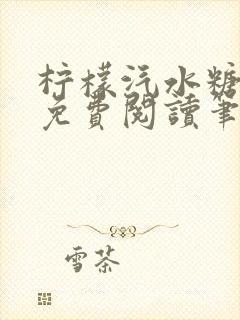 柠檬汽水糖
免費閱讀筆
雪茶